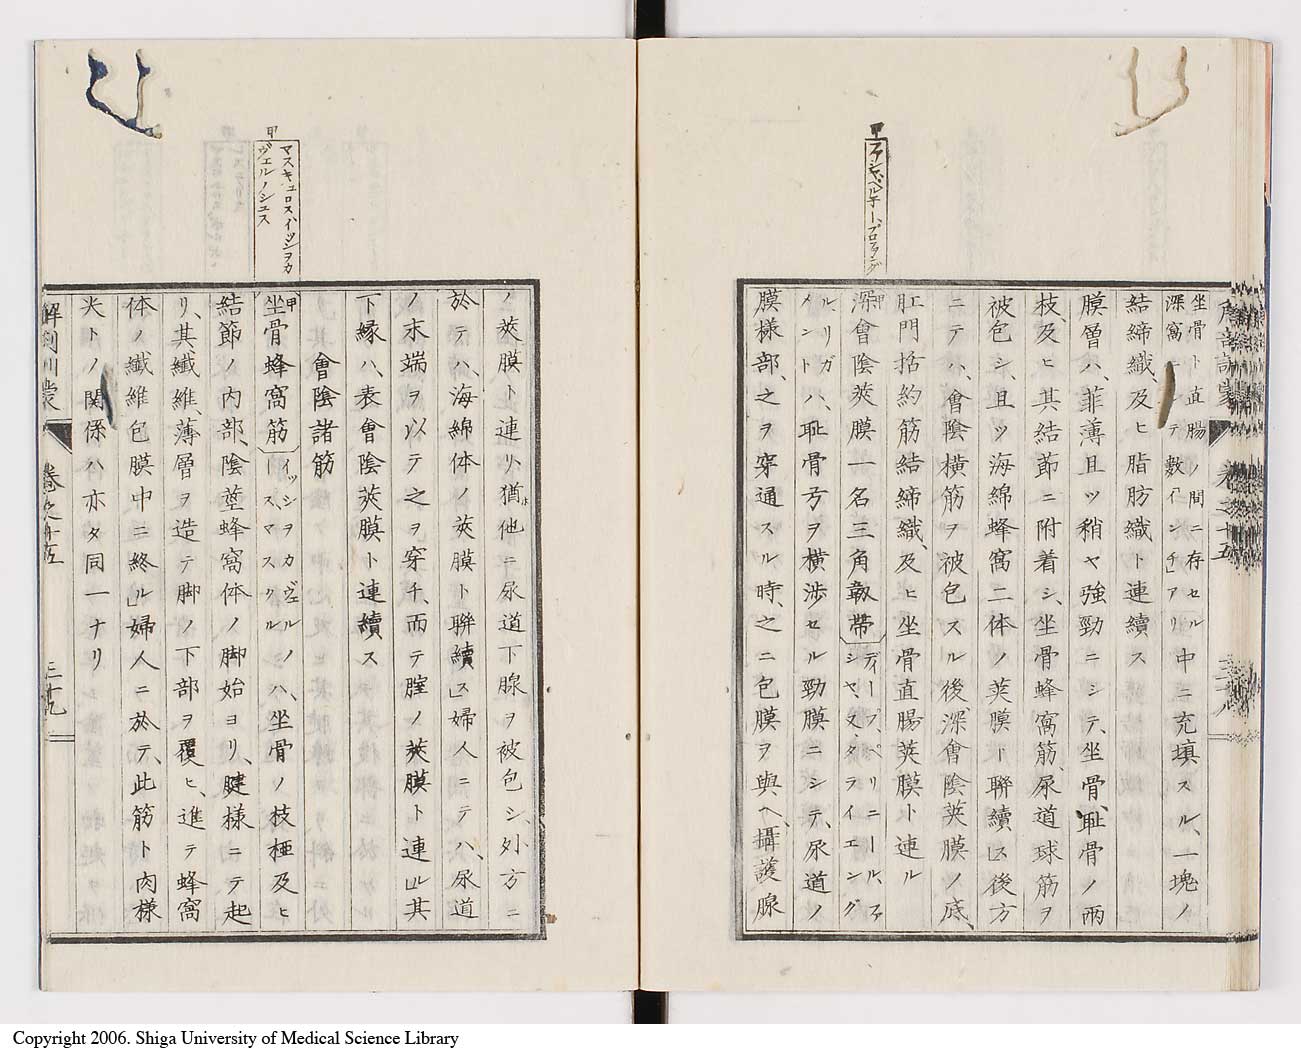 甲
ファシヤ、ペル子ー、プロフング
坐骨ト直腸ノ間ニ存セル中ニ充填スル、一塊ノ
深窩ニシテ數「インチ」アリ
結締織、及ヒ脂肪織ト連續ス
膜層ハ、菲薄且ツ稍ヤ強勁ニシテ、坐骨、耻骨ノ兩
枝、及ヒ其結節ニ附着シ、坐骨蜂窩筋、尿道球筋ヲ
被包シ、且ツ海綿蜂窩二体ノ莢膜ト聯續」ス後方
ニテハ、會陰横筋ヲ被包スル後、深會陰莢膜ノ底、
肛門括約筋結締織、及ヒ坐骨直腸莢膜ト連ル
甲
深會陰莢膜一名三角靱帶
ディープ、ペリニール、ファ
シヤ、ヌ、タライエング
ル、リガ
メント
ハ、耻骨弓ヲ横渉セル勁膜ニシテ、尿道ノ
膜様部、之ヲ穿通スル時、之ニ包膜ヲ與ヘ、攝護腺
甲
マスキュロスイッシヲカ
ヴェルノシユス
ノ莢膜ト連リ、猶他ニ尿道下腺ヲ被包シ、外方ニ
於テハ、海綿体ノ莢膜ト聯續ス」婦人ニテハ、尿道
ノ末端ヲ以テ之ヲ穿チ、而テ腟ノ莢膜ト連ル」其
下縁ハ、表會陰莢膜ト連續ス
會陰諸筋
甲
坐骨蜂窩筋
イッシヲカヴェル
ノース、マスクル
ハ、坐骨ノ枝極及ヒ
結節ノ内部、陰莖蜂窩体ノ脚始ヨリ、腱様ニテ起
リ、其纖維、薄層ヲ造テ脚ノ下部ヲ覆ヒ、進テ蜂窩
体ノ纖維包膜中ニ終ル」婦人ニ於テ、此筋ト肉様
尖トノ關係ハ亦タ同一ナリ
解剖訓蒙
卷之十五
三十九
Copyright 2006. Shiga University of Medical Science Library